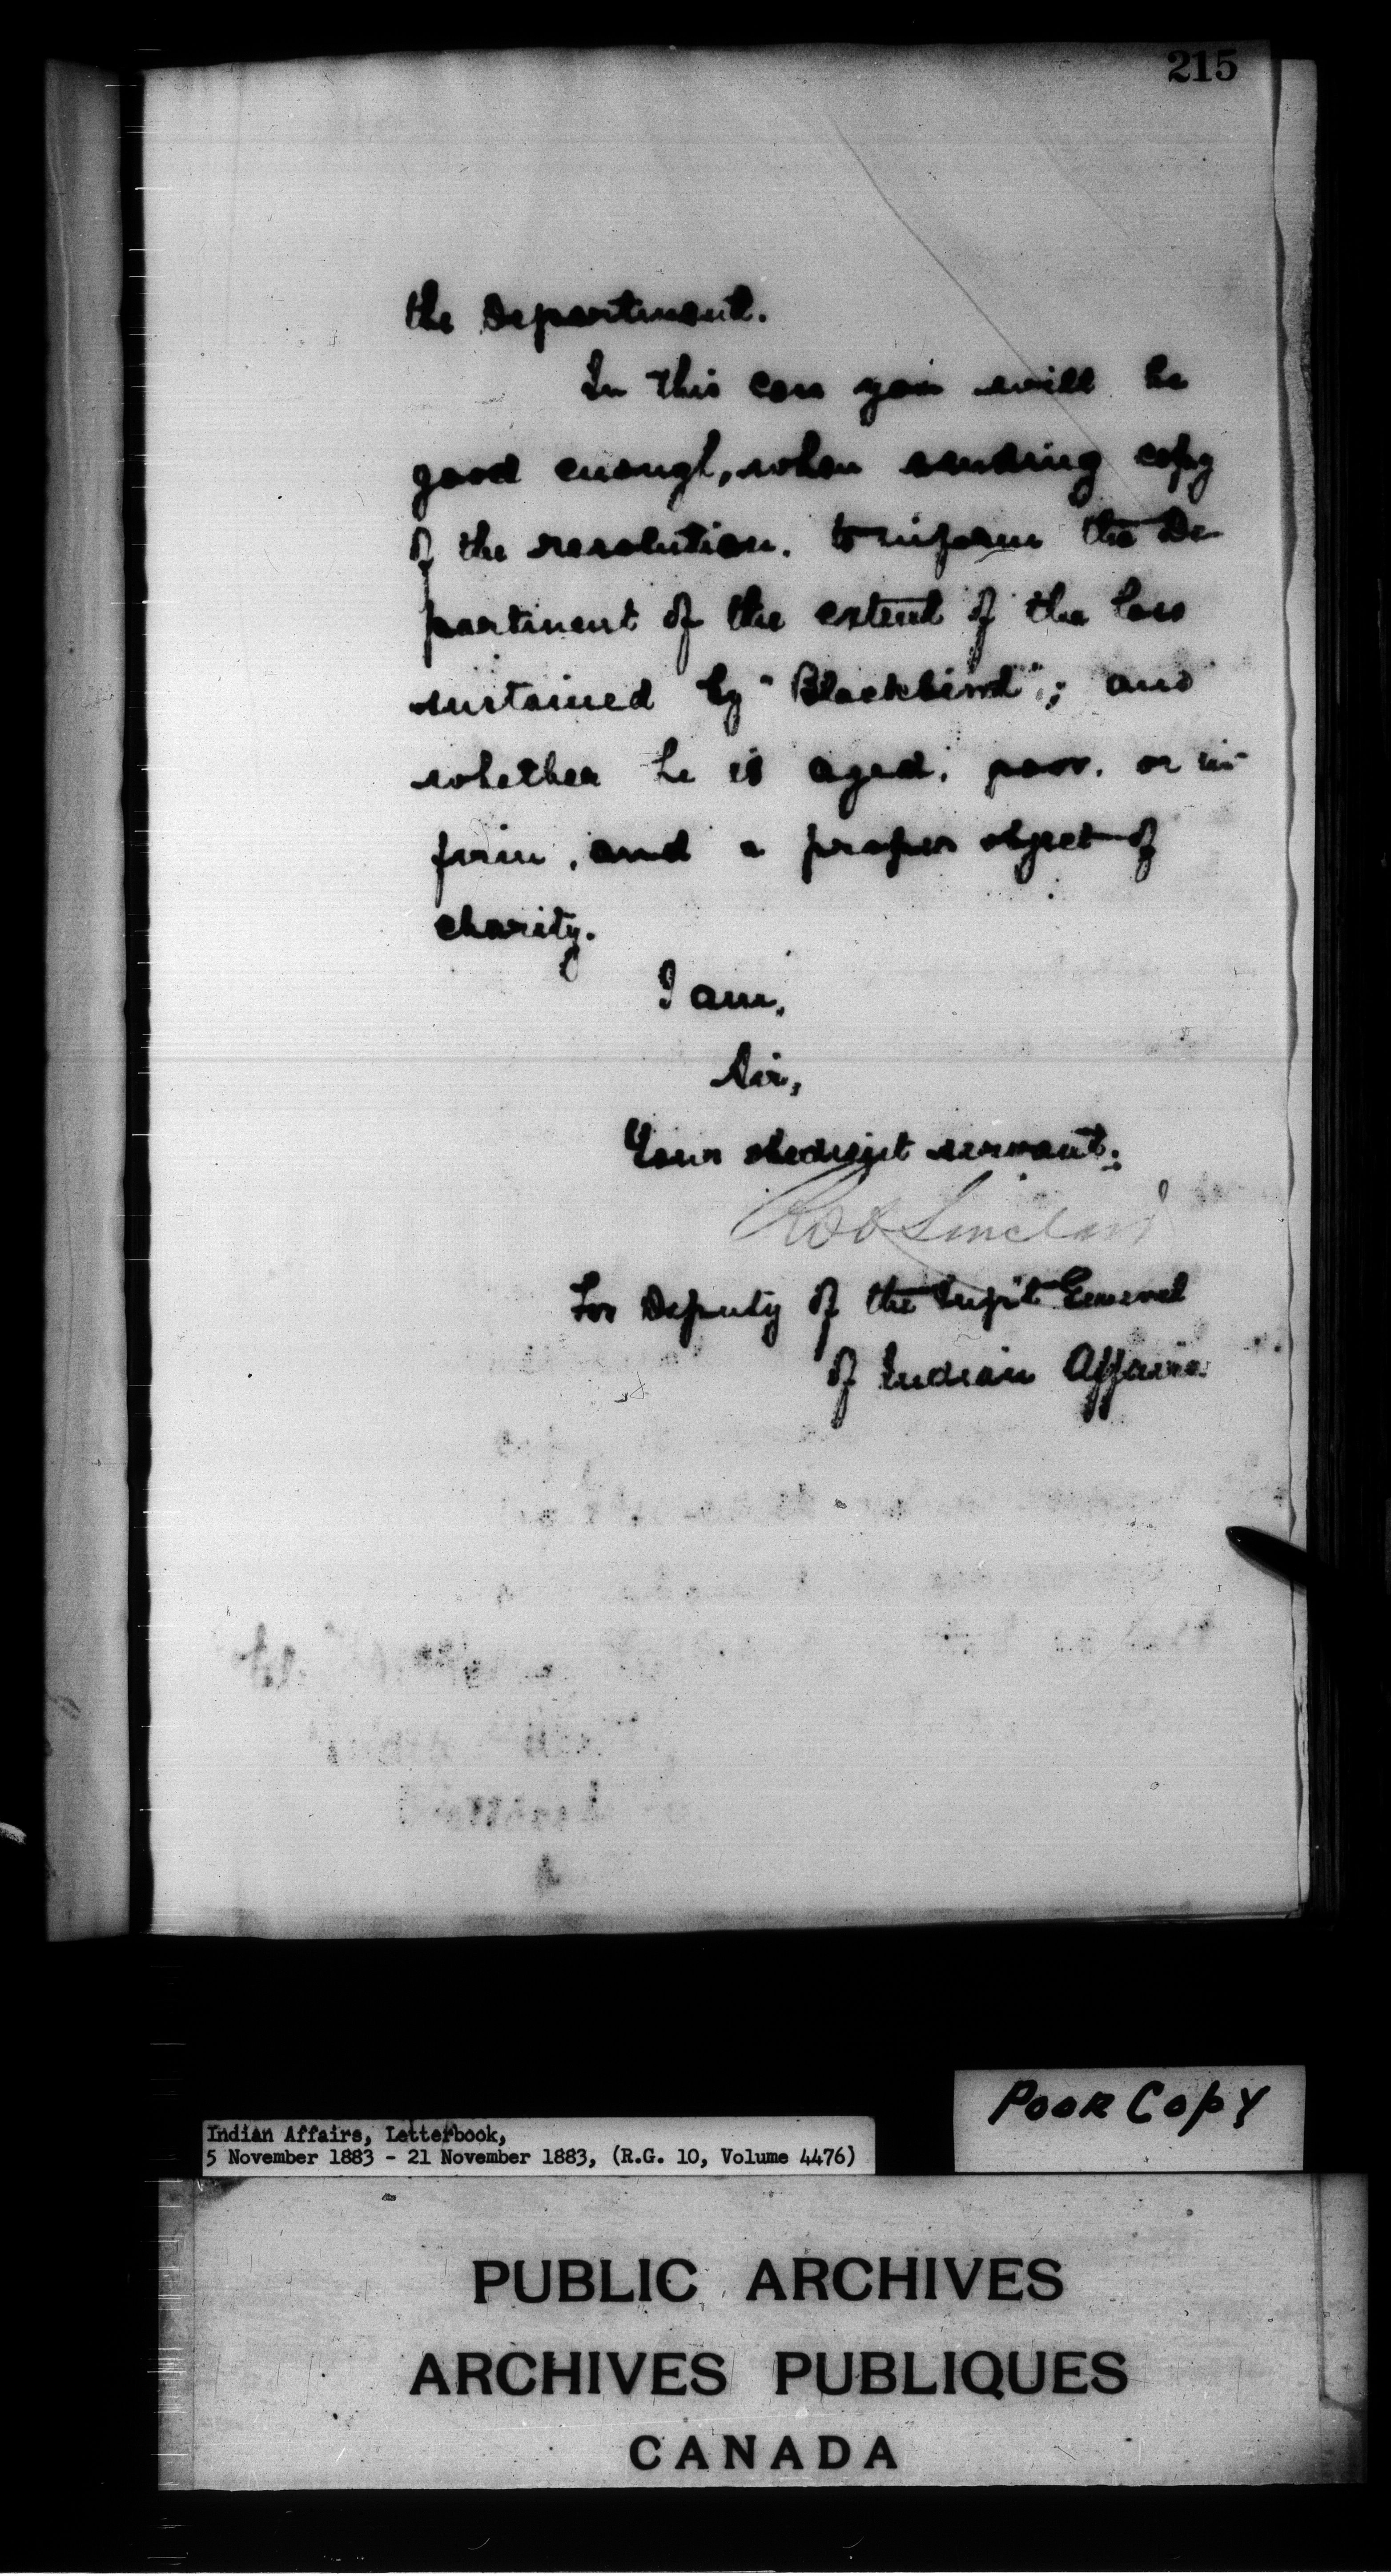 215
the Department.
In this case you will be
good enough, when sending copy
of the resolution, to inform the De
partment of the extent of the loss
sustained by "Blackbird"; and
whether he is aged, poor, or in-
firm, and a proper object of
charity.
I am,
Sir,
Your obedient servant.
Robt Sinclair
For Deputy of the Supt General
of Indian Affairs.
POOR COPY
Indian Affairs, Letterbook,
5 November 1883 - 21 November 1883, (R.G. 10, Volume 4476)
PUBLIC ARCHIVES
ARCHIVES PUBLIQUES
CANADA